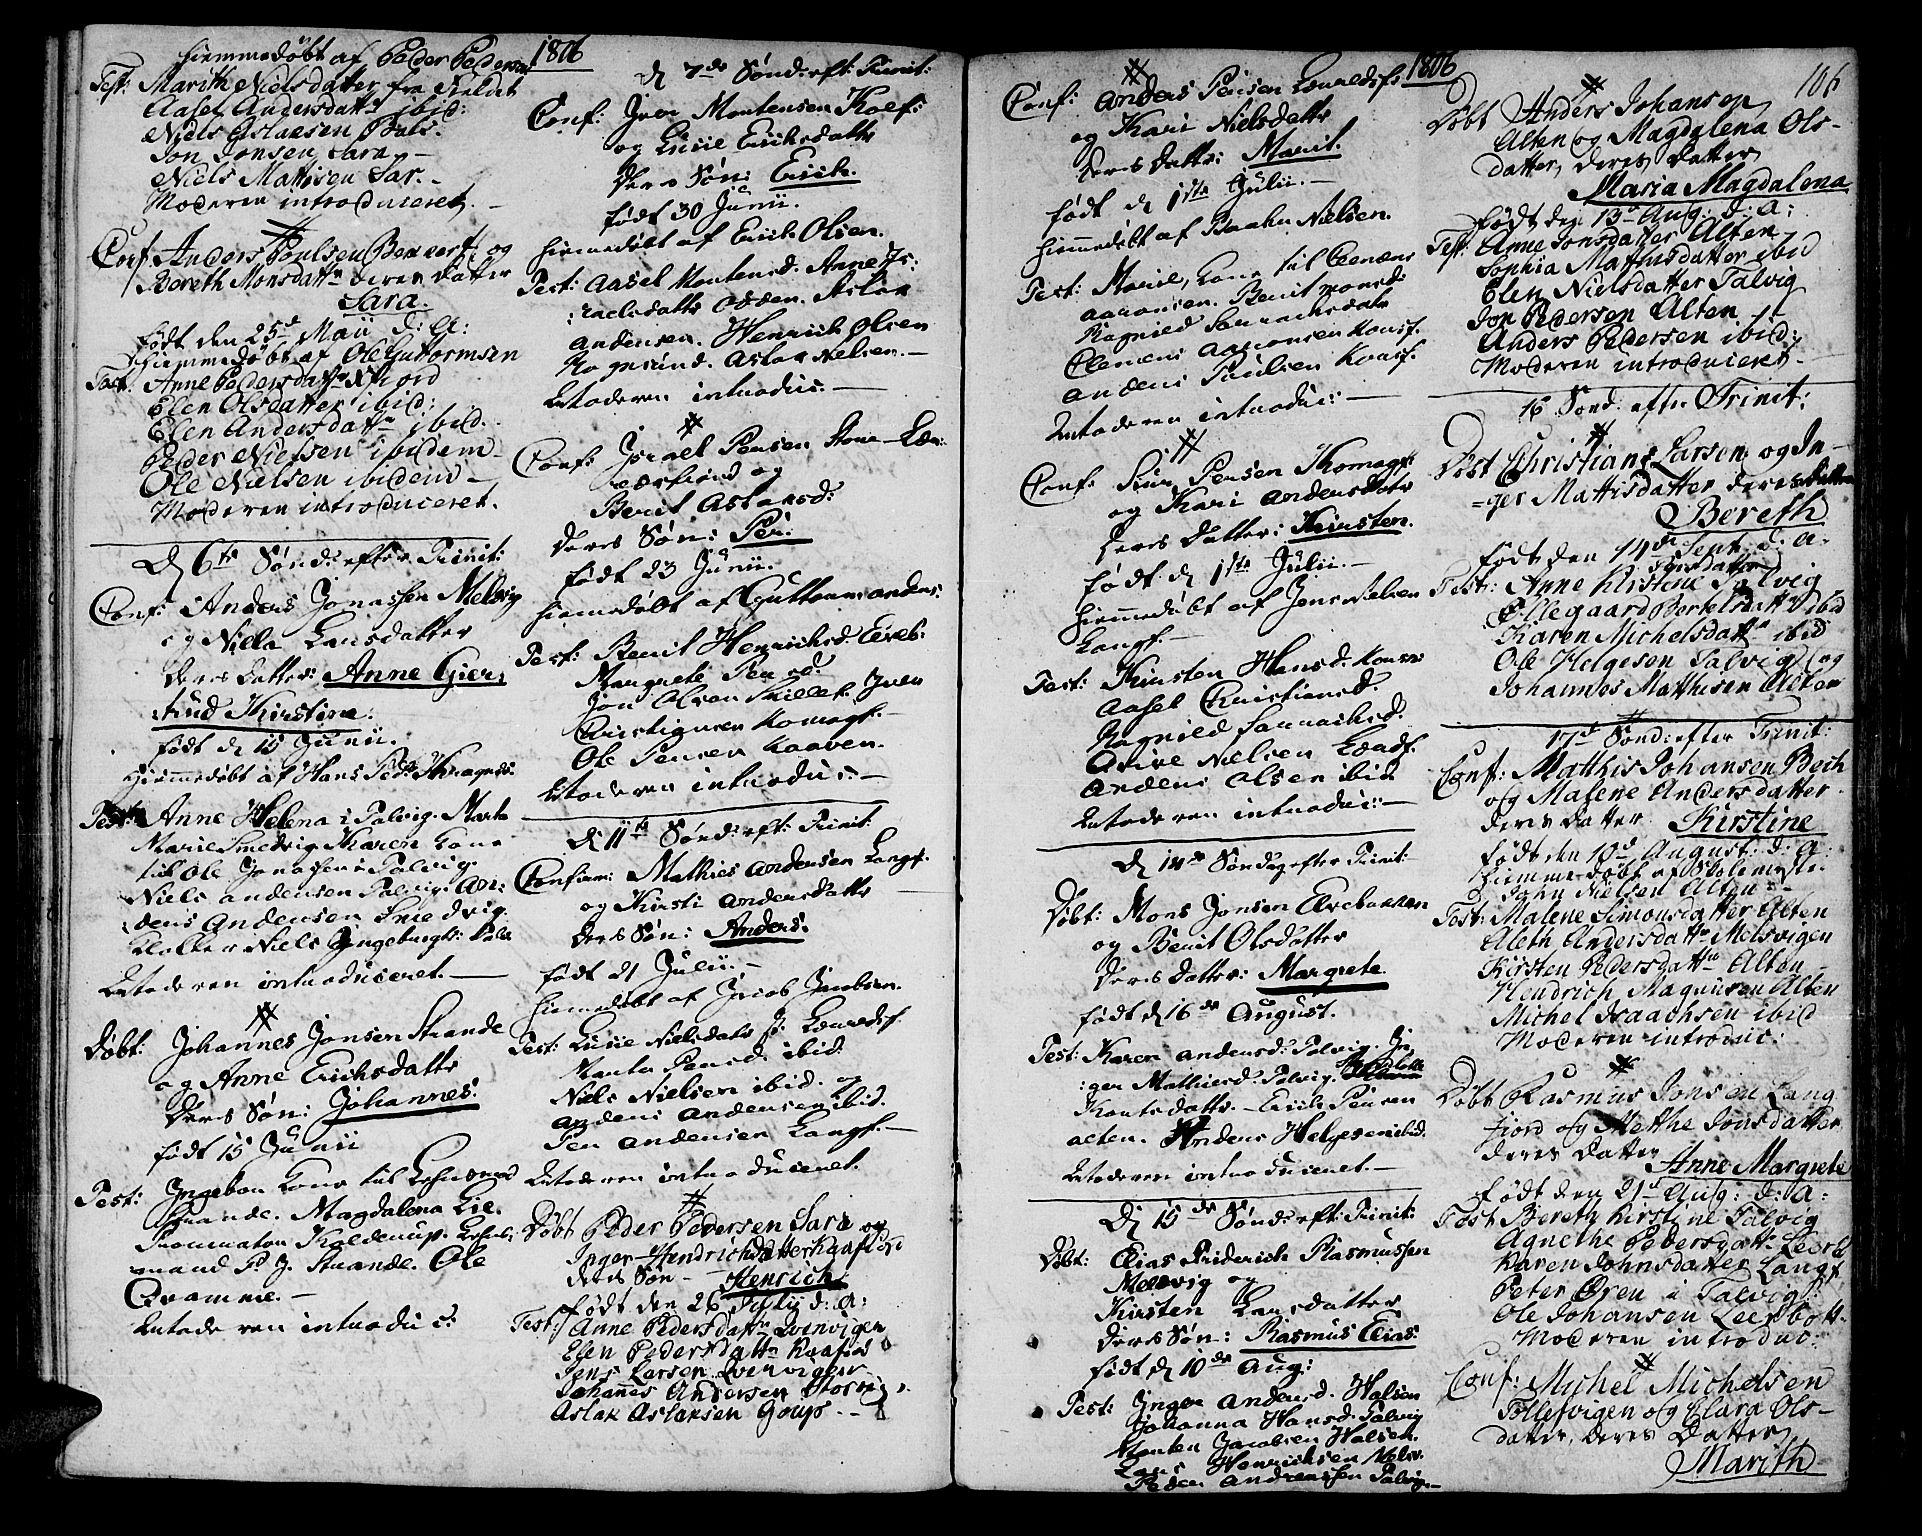 hiemmedøbt af Peder Pedersen
Test: Marith Nielsdatter fra
Aasel Andersdatter ibid:
Niels Aslaksen Bals.
Jon Jonsen Sara –
Niels Mathisen Sar. –
Moderen introduceret. –
Conf: Anders Poulsen og
Bereth Monsdattr deres Datter
Sara.
født den 25d Maii d: A:
hiemmedøbt af Ole Guttormsen
Test: Anne Pedersdattr
Elen Olsdatter ibid:
Elen Andersdattr ibid.
Peder Nielsen ibidem –
Ole Nielsen ibidem –
Moderen introduceret.
D 6te Sønd: efter Trinit:
Conf: Anders Jonassen Melsvig
og Nilla Larsdatter
Deres Datter: Anne Gjer
trud Kirstine.
født d 15 Junii.
Hiemmedøbt af Hans Peds:
Test: Anne Helena i Talvig. Marte
Marie Smedvig Karen Kone
til Ole Jonassen i Talvig.
Niels Andersen Talvig: An:
ders Andersen Smedvig.
Niels Ingebrigts:
Moderen introduceret. –
Døbt: Johannes Jonsen Strande
og Anne Erichsdattr
Deres Søn: Johannes.
født 15 Junii
Test: Ingebor Kone til Lehnsmand
Strande. Magdalena Lie.
Procurator Kalderup. Lehns:
mand P. J. Strande. Ole
Qvamme. –
Moderen introduc:
1806
D 7de Sønd: eft: Trinit:
Conf: Iver Mortensen Kaaf:
og Lusie Erichsdattr
Deres Søn: Erich.
født 30 Junii.
hiemmedøbt af Erich Olsen.
Test: Aasel Mortensd. Anne Is:
raelsdattr Aslak
Andersen. Henrich Olsen
Aslak Nielsen. –
Moderen introduc: –
Conf: Israel Persen
og
Berit Aslaksd:
Deres Søn: Per.
født 23 Junii.
hiemmedøbt af Guttorm Anders:
Test: Berit Henrichsd.
Margrete Persd.
Jon Olsen Iver
Christiansen Komagf. –
Ole Persen Kaaven.
Moderen introduc: –
D 11te Sønd: eft: Trinit:
Confirm: Mathies Andersen Langf.
og Kirsti Andersdattr
Deres Søn: Anders.
født d 1 Julii. –
hiemmedøbt af Jacob Jacobsen.
Test: Lusie Nielsdattr
Marta Persd. ibid.
Niels Nielsen ibid. og
Anders Andersen ibid.
Per Andersen Langf. –
Moderen introduceret.
Døbt Peder Pedersen Sara og
Inger Hendrichsdatter Kaafior
Deres Søn – Henrich
født den 26 Julii d: A:
Test: Anne Pedersdattr Qvenvigen
Elen Pedersdattr Kaafior
Jens Larsen Qvenvigen
Johannes Andersen
Aslak Aslaksen Goup. –
1806
Conf: Anders Persen
og Kari Nielsdattr
Deres Dattr: Marit.
født d 1ste Julii. –
hiemmedøbt af Nielsen.
Test: Marie, Kone til Clemens
Aaronsen. Berit Monsd:
Ragnild
Clemens Aaronsen
Anders Poulsen
Moderen introduc: –
Conf: Siur Persen Komagf:
og Kari Andersdattr
Deres Datter: Kirsten.
født d 1ste Julii. –
hiemmedøbt af Jens Nielsen
Langf. –
Test: Kirsten Hansd.
Aasel Christiansd.
Ragnild
Nielsen
Anders Olsen ibid
Moderen introduc: –
D 14de Søndag efter Trinit:
Døbt: Mons Jonsen
og Berit Olsdatter
Deres Datter: Margrete.
født d 16de August.
Test: Karen Andersd: Talvig. In
:ger Mathiesd. Talvig.
Erich Persen
Alten. Anders Helgesen ibid.
Moderen introduceret. –
D 15de Sønd: eft: Trinit:
Døbt: Elias Friderich Rasmussen
Melsvig og
Kirsten Larsdatter
Deres Søn: Rasmus Elias.
født d 10de Aug:
Test: Inger Andersd. Halsen
Johanna Hansd. Talvig
Morten Jacobsen Halsen.
Lars Henrichsen Melsv.
Peder Andreassen Talvig. –
106
Døbt Anders Johansen
Alten og Magdalena Ols-
datter, deres Datter
Maria Magdalena
født den 13d Aug. d: A:
Test: Anne Jonsdatter Alten
Sophia Mathisdatter ibid
Elen Nielsdatter Talvig
Jon Pedersen Alten –
Anders Pedersen ibid:
Moderen introduceret –
16 Sønd. efter Trinit:
Døbt Christian Larsen og In-
=ger Mattisdatter deres Datter
Bereth
født den 14de Sept. d. A.
Jonsdatter
Test: Anne Kirstine Talvig
Ellegaard Bertelsdattr ibid
Karen Michelsdattr ibid
Ole Helgesen Talvig og
Johannes Matthisen Alten
17d Sønd: efter Trinit:
Conf: Matthis Johansen Bech
og Malene Andersdatter
deres Datter Kirstine
født den 10d August: d: A:
hiemmedøbt af Skolemstr.
John Nielsen Alten –
Test: Malene Simonsdatter Alten
Aleth Andersdattr Melsvigen
Kirsten Pedersdattr Alten –
Hendrich Magnusen Alten
Michel Isaachsen ibid
Moderen introduc:
Døbt Rasmus Jonsen Lang
fiord og Methe Jonsdatter
deres Datter
Anne Margrete
født den 21d Aug: d: A:
Test Bereth Kirstine Talvig
Agnethe Pedersdattr
Karen Johnsdatter Langf
Peter Øren i Talvig
Ole Johansen Leerbott.
Moderen introduc:
Conf: Michel Michelsen
Tollefvigen og Clara Ols-
datter, deres Datter
Marith